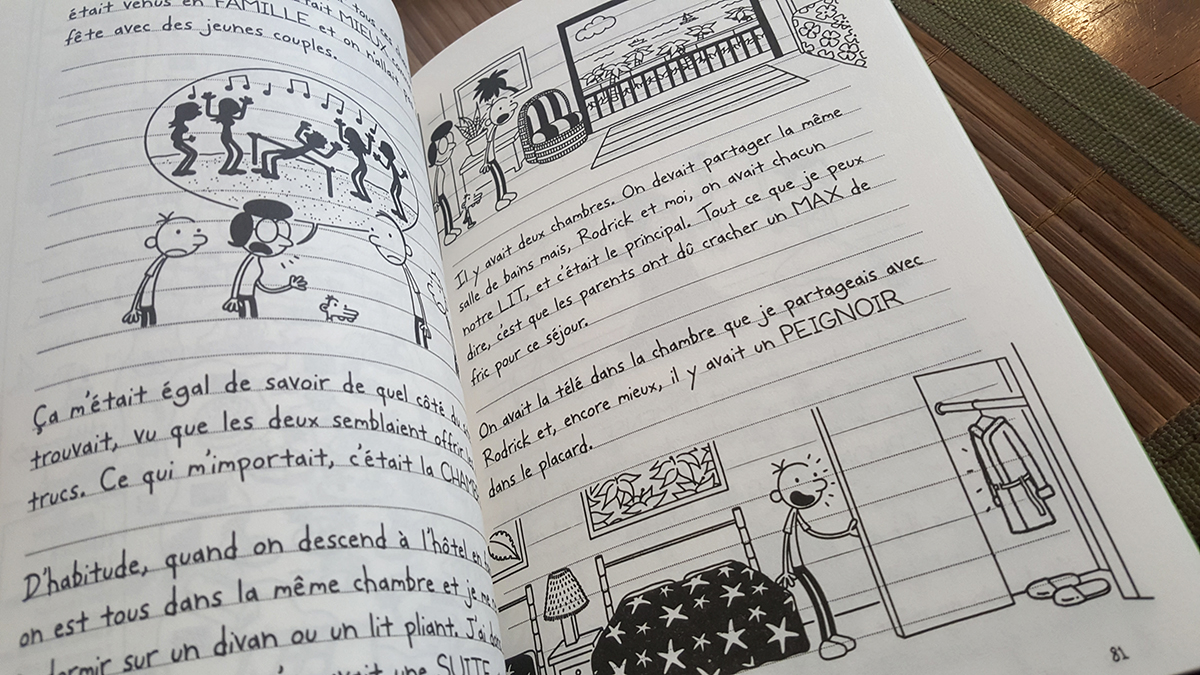 était venus en FAMILLE et on n'allait
fête avec des jeunes couples.
Ça m'était égal de savoir de quel côté
trouvait, vu que les deux semblaient offrir
trucs. Ce qui m'importait, c'était la
D'habitude, quand on descend à l'hôtel en
on est tous dans la même chambre et je
dormir sur un divan ou un lit pliant. J'ai
une SUITE
Il y avait deux chambres. On devait partager la même
salle de bains mais, Rodrick et moi, on avait chacun
notre LIT, et c'était le principal. Tout ce que je peux
dire, c'est que les parents ont dû cracher un MAX de
fric pour ce séjour.
On avait la télé dans la chambre que je partageais avec
Rodrick et, encore mieux, il y avait un PEIGNOIR
dans le placard.
81